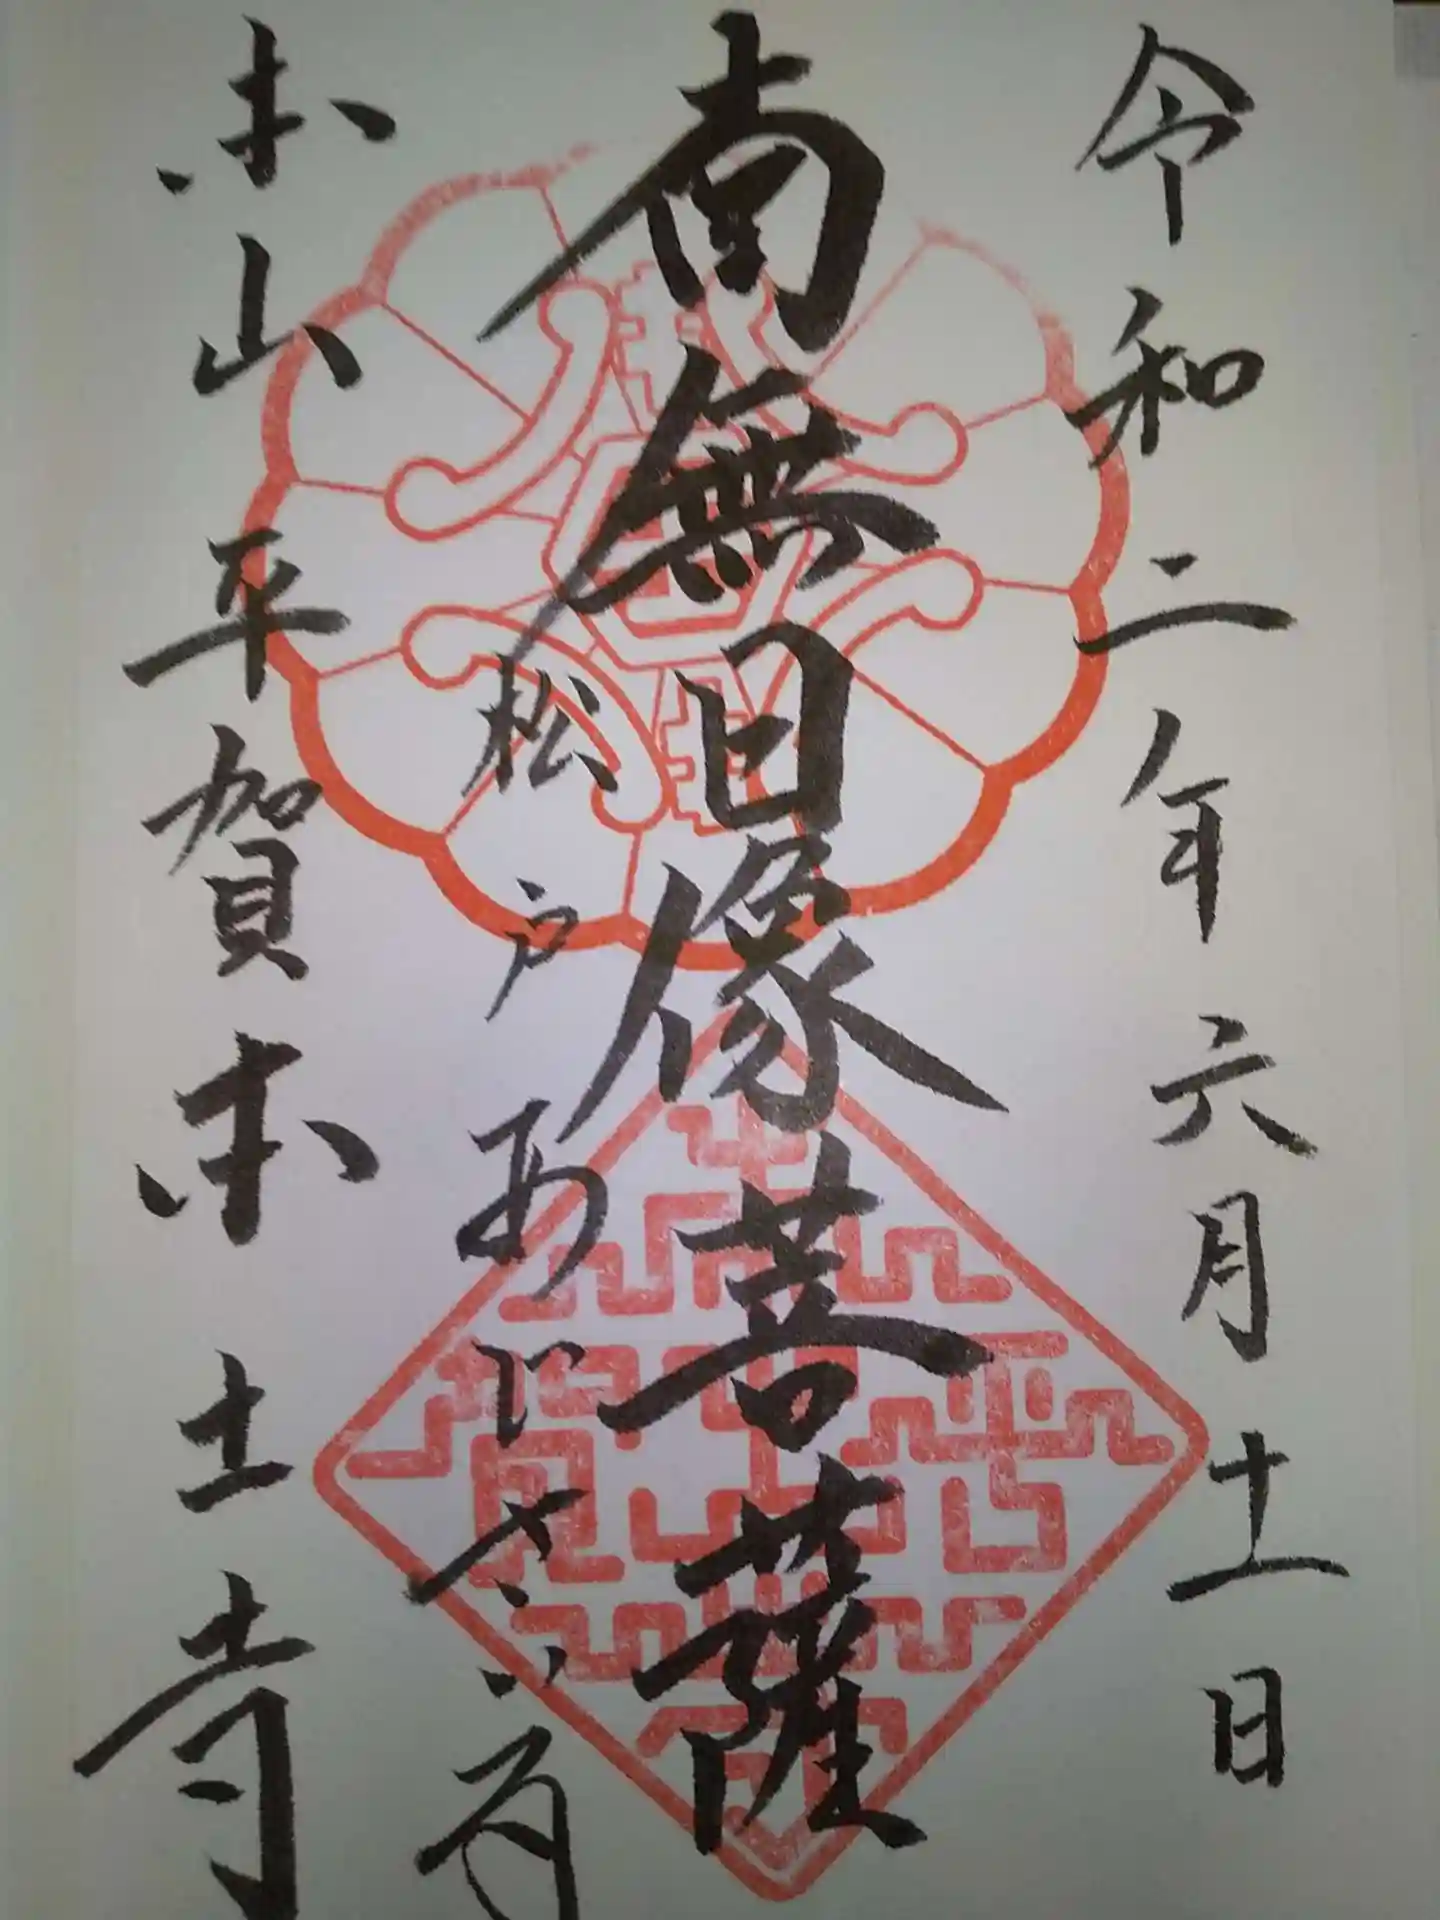 令和二年六月十一日
南無日像菩薩
松戸あじさゐ
本山平賀本土寺